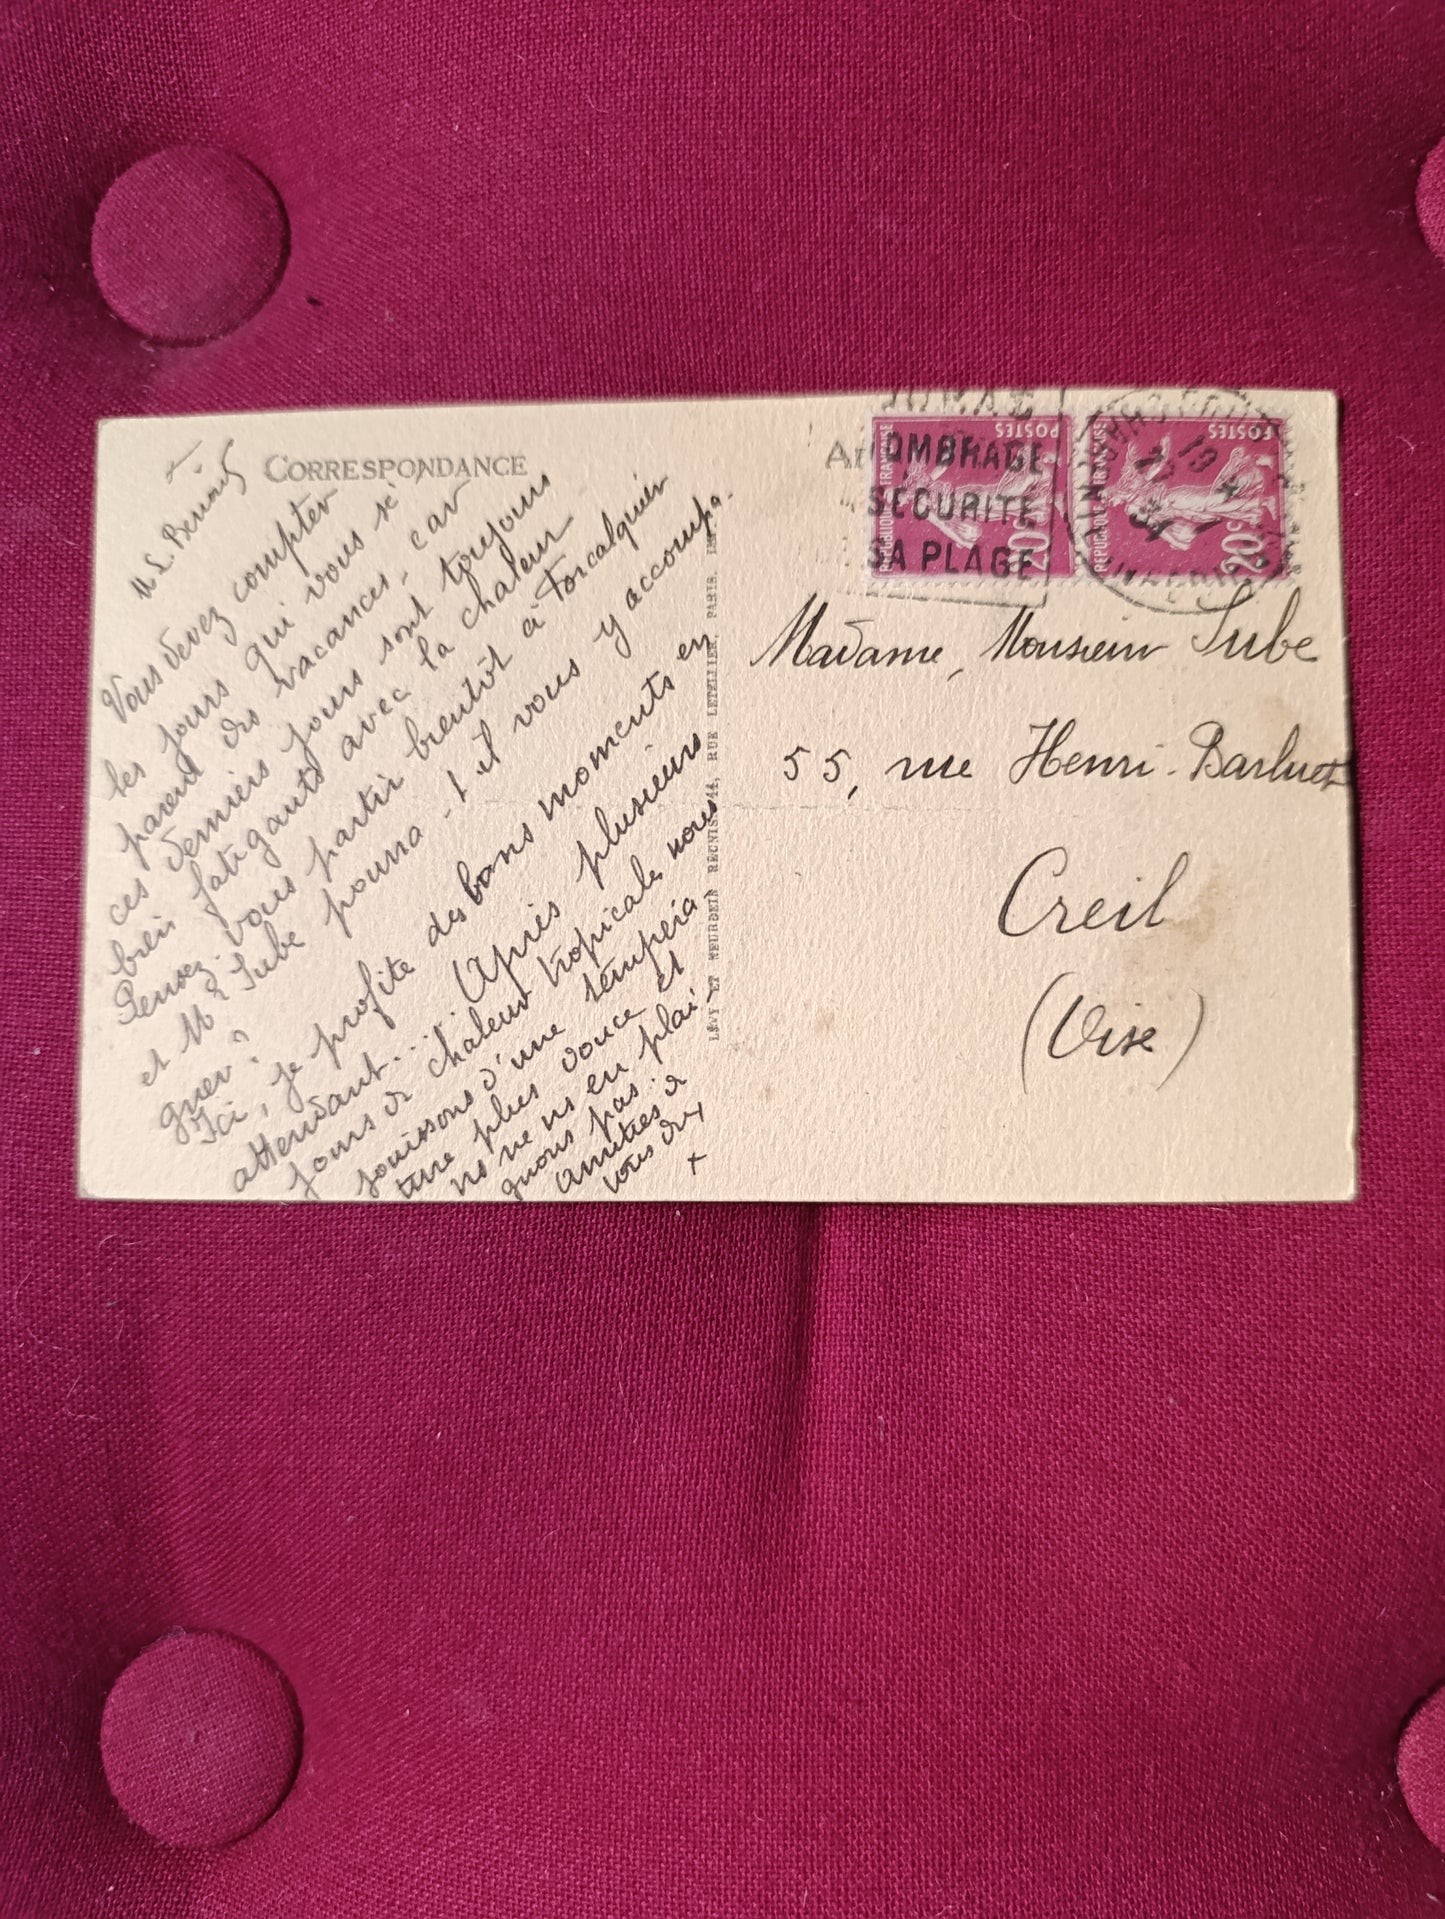 CORRESPONDANCE
Vous devez compter
les jours qui vous sé
parent des vacances, car
ces derniers jours sont toujours
bien fatigants avec la chaleur
Pensez-vous partir bientôt à Forcalquier
et Mr Sube pourra-t-il vous y accompa-
gner?
Ici, je profite des bons moments en
attendant.... Après plusieurs
jours de chaleur tropicale, nous
jouissons d'une tempéra-
ture plus douce et
ns ne ns en plai-
gnons pas.
Amitiés à
vous dx
LÉVY ET NEURDEIN RÉUNIS, 44, RUE LETELLIER, PARIS, IMP.
OMBRAGE
SÉCURITÉ
SA PLAGE
POSTES
REPUBLIQUE FRANÇAISE
20c
POSTES
REPUBLIQUE FRANÇAISE
20c
Madame, Monsieur Sube
55, rue Henri-Barbusse
Creil
(Oise)